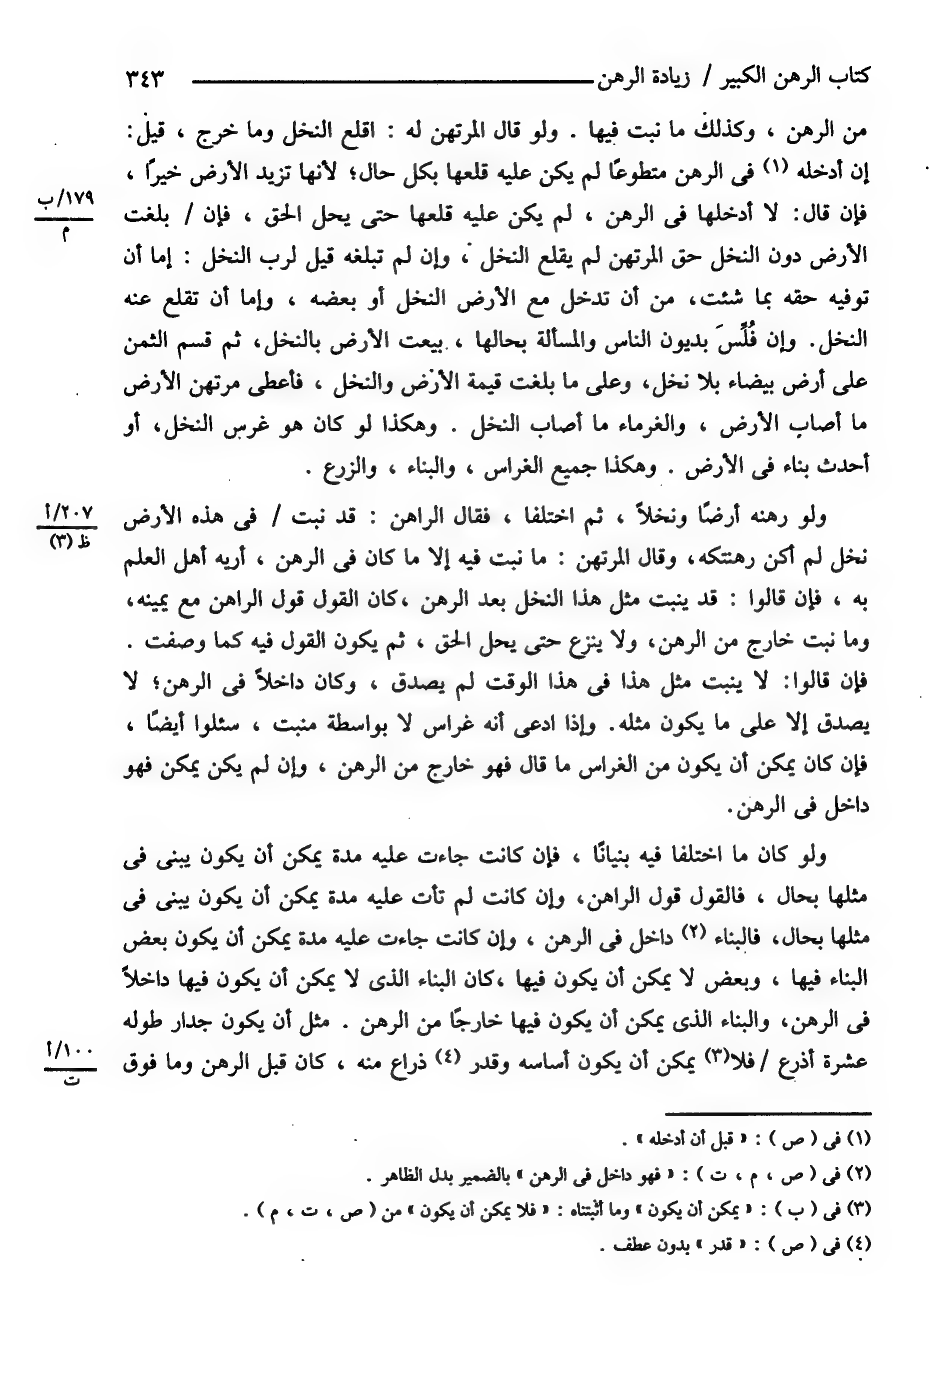 كتاب الرهن الكبير / زيادة الرهن ٣٤٣
من الرهن ، وكذلك ما نبت فيها . ولو قال المرتهن له : اقلع النخل وما خرج ، قيل :
إن أدخله (١) فى الرهن متطوعًا لم يكن عليه قلعها بكل حال؛ لأنها تزيد الأرض خيرًا ،
١٧٩/ب
م
فإن قال: لا أدخلها فى الرهن ، لم يكن عليه قلعها حتى يحل الحق ، فإن / بلغت
الأرض دون النخل حق المرتهن لم يقلع النخل ، وإن لم تبلغه قيل لرب النخل : إما أن
توفيه حقه بما شئت، من أن تدخل مع الأرض النخل أو بعضه ، وإما أن تقلع عنه
النخل. وإن فُلِّسَ بديون الناس والمسألة بحالها ، بيعت الأرض بالنخل، ثم قسم الثمن
على أرض بيضاء بلا نخل، وعلى ما بلغت قيمة الأرض والنخل ، فأعطى مرتهن الأرض
ما أصاب الأرض ، والغرماء ما أصاب النخل . وهكذا لو كان هو غرس النخل، أو
أحدث بناء فى الأرض . وهكذا جميع الغراس ، والبناء ، والزرع .
٢٠٧/أ
ظ (٣)
ولو رهنه أرضًا ونخلاً ، ثم اختلفا ، فقال الراهن : قد نبت / فى هذه الأرض
نخل لم أكن رهنتكه، وقال المرتهن : ما نبت فيه إلا ما كان فى الرهن ، أريه أهل العلم
به ، فإن قالوا : قد ينبت مثل هذا النخل بعد الرهن ،كان القول قول الراهن مع يمينه،
وما نبت خارج من الرهن، ولا ينزع حتى يحل الحق ، ثم يكون القول فيه كما وصفت .
فإن قالوا: لا ينبت مثل هذا فى هذا الوقت لم يصدق ، وكان داخلاً فى الرهن؛ لا
يصدق إلا على ما يكون مثله. وإذا ادعى أنه غراس لا بواسطة منبت ، سئلوا أيضًا ،
فإن كان يمكن أن يكون من الغراس ما قال فهو خارج من الرهن ، وإن لم يكن يمكن فهو
داخل فى الرهن.
ولو كان ما اختلفا فيه بنيانًا ، فإن كانت جاءت عليه مدة يمكن أن يكون يبنى فى
مثلها بحال ، فالقول قول الراهن، وإن كانت لم تأت عليه مدة يمكن أن يكون يبنى فى
مثلها بحال، فالبناء (٢) داخل فى الرهن ، وإن كانت جاءت عليه مدة يمكن أن يكون بعض
البناء فيها ، وبعض لا يمكن أن يكون فيها ،كان البناء الذى لا يمكن أن يكون فيها داخلاً
فى الرهن، والبناء الذى يمكن أن يكون فيها خارجًا من الرهن . مثل أن يكون جدار طوله
١٠٠/أ
ت
عشرة أذرع / فلا(٣) يمكن أن يكون أساسه وقدر (٤) ذراع منه ، كان قبل الرهن وما فوق
(١) فى ( ص ) : « قبل أن أدخله » .
(٢) فى ( ص ، م ، ت ) : « فهو داخل فى الرهن » بالضمير بدل الظاهر .
(٣) فى ( ب ) : « يمكن أن يكون » وما أثبتناه : « فلا يمكن أن يكون » من ( ص ، ت ، م ) .
(٤) فى ( ص ) : « قدر » بدون عطف .